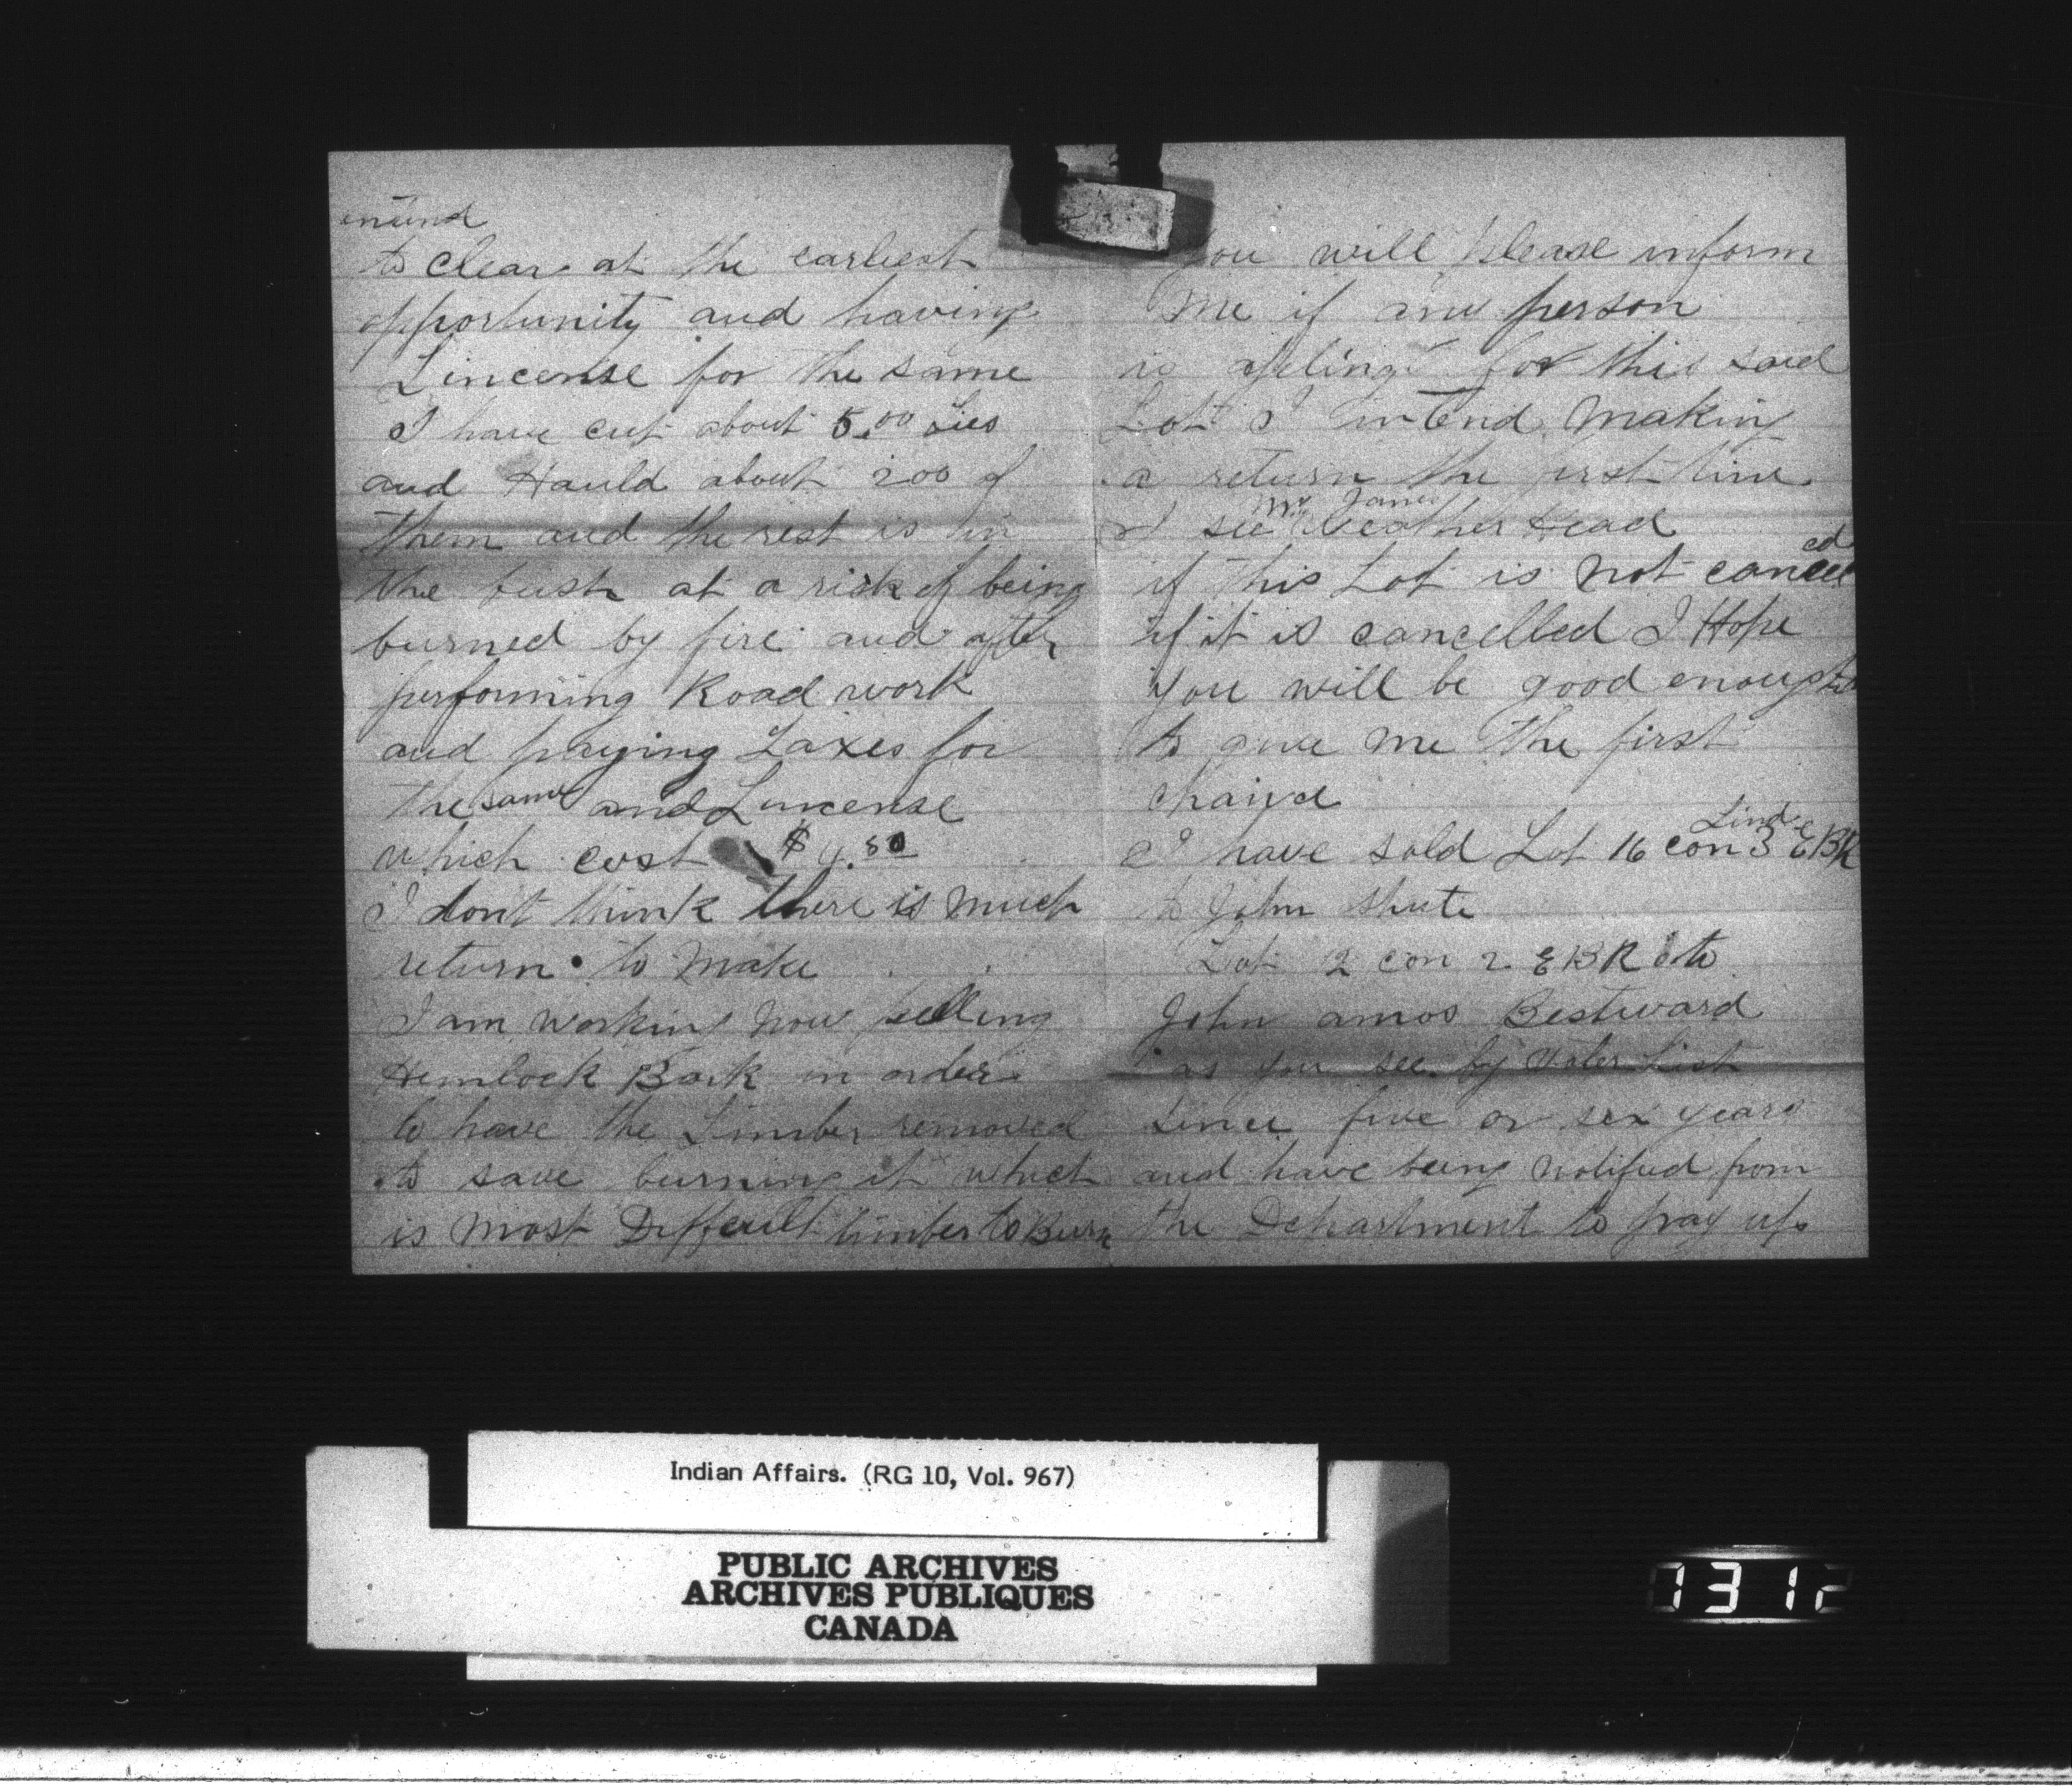 intend
to clear at the earliest
opportunity and having
Lincense for the same
I have cut about 5.00 Ties
and Hauld about 200 of
them and the rest is in
the bush at a risk of being
burned by fire and after
performing Road work
and paying Taxes for
the same and Lincense
which cost $4.50
I dont think there is much
return to make
I am working now pelling
Hemlock Bark in order
to have the Timber removed
to save burning it which
is most Difficult timber to Burn
you will please inform
me if any person
is apling for this said
Lot I intend making
a return the first time
Mr James
I see Weather Head
if this Lot is not canceled
if it is cancelled I Hope
you will be good enough
to give me the first
chance
I have sold Lot 16 con 3 Lind EBR
to John Shute
Lot 12 con 2 EBR to
John amos Bestward
as you see by Voter List
since five or sex years
and have being notified from
the Department to pay up
Indian Affairs. (RG 10, Vol. 967)
PUBLIC ARCHIVES
ARCHIVES PUBLIQUES
CANADA
1312